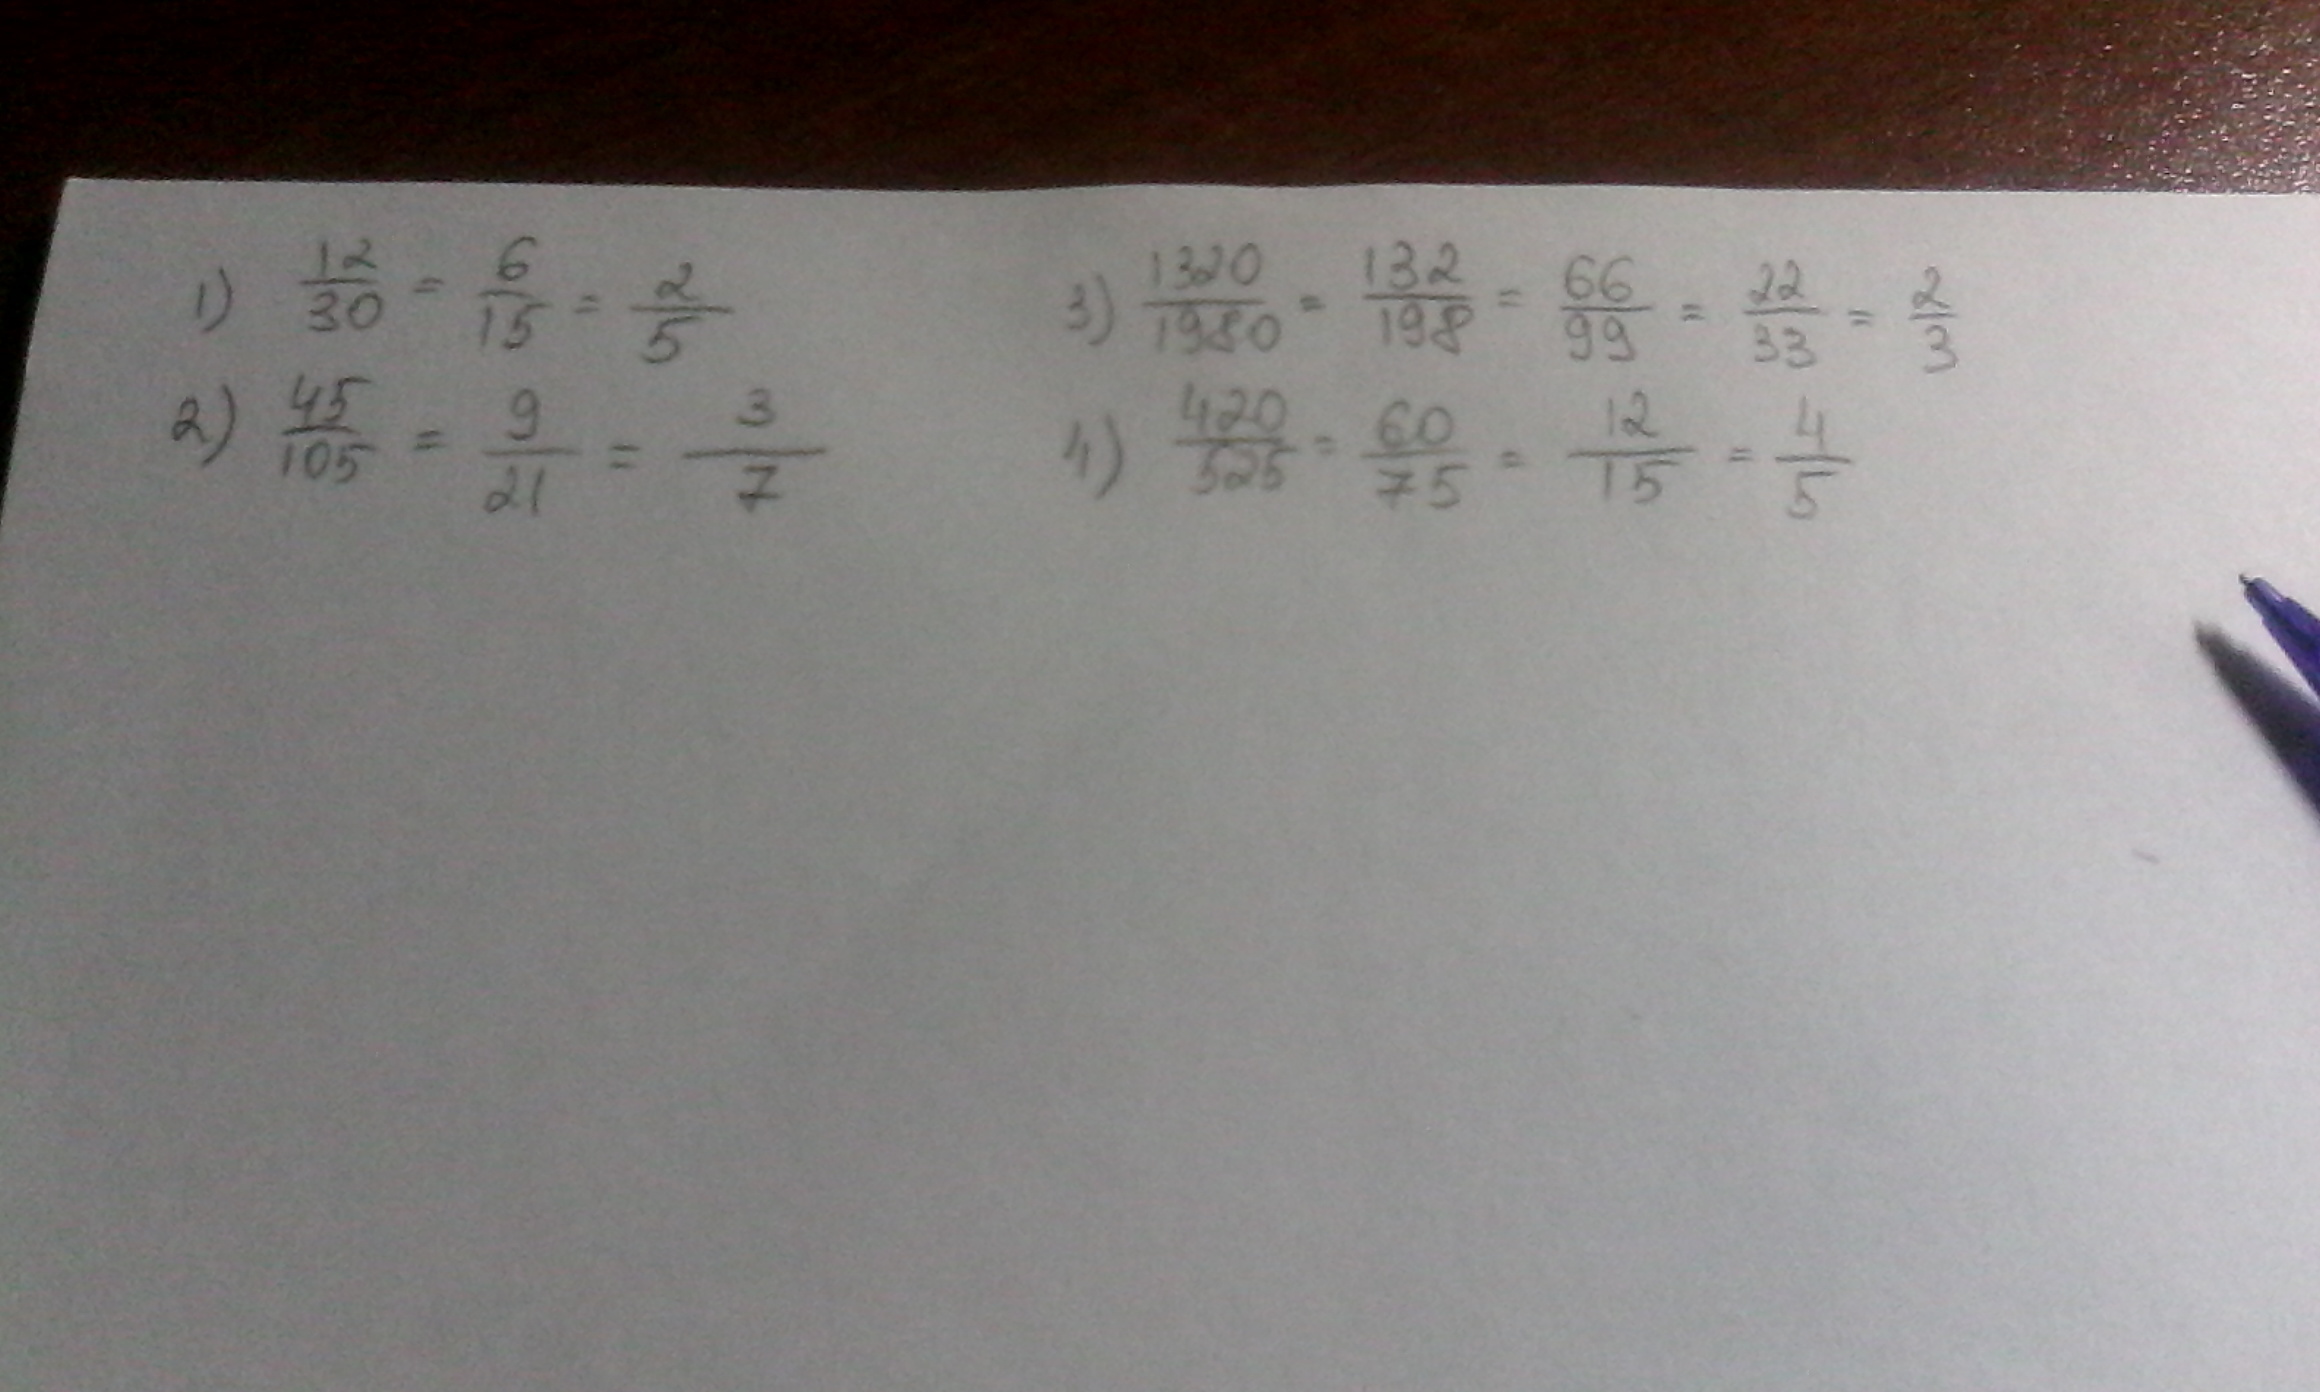 1) 12/30 = 6/15 = 2/5
2) 45/105 = 9/21 = 3/7
3) 1320/1980 = 132/198 = 66/99 = 22/33 = 2/3
4) 420/525 = 60/75 = 12/15 = 4/5